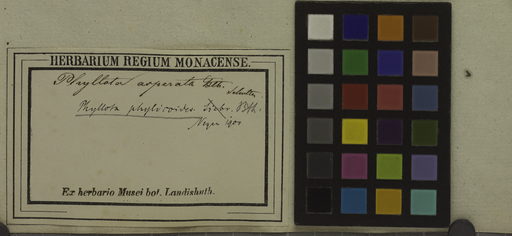 HERBARIUM REGIUM MONACENSE.
Phyllota asperata
Phyllota phylicoides Bth.
Neger 1900
Ex herbario Musei bot. Landishuth.